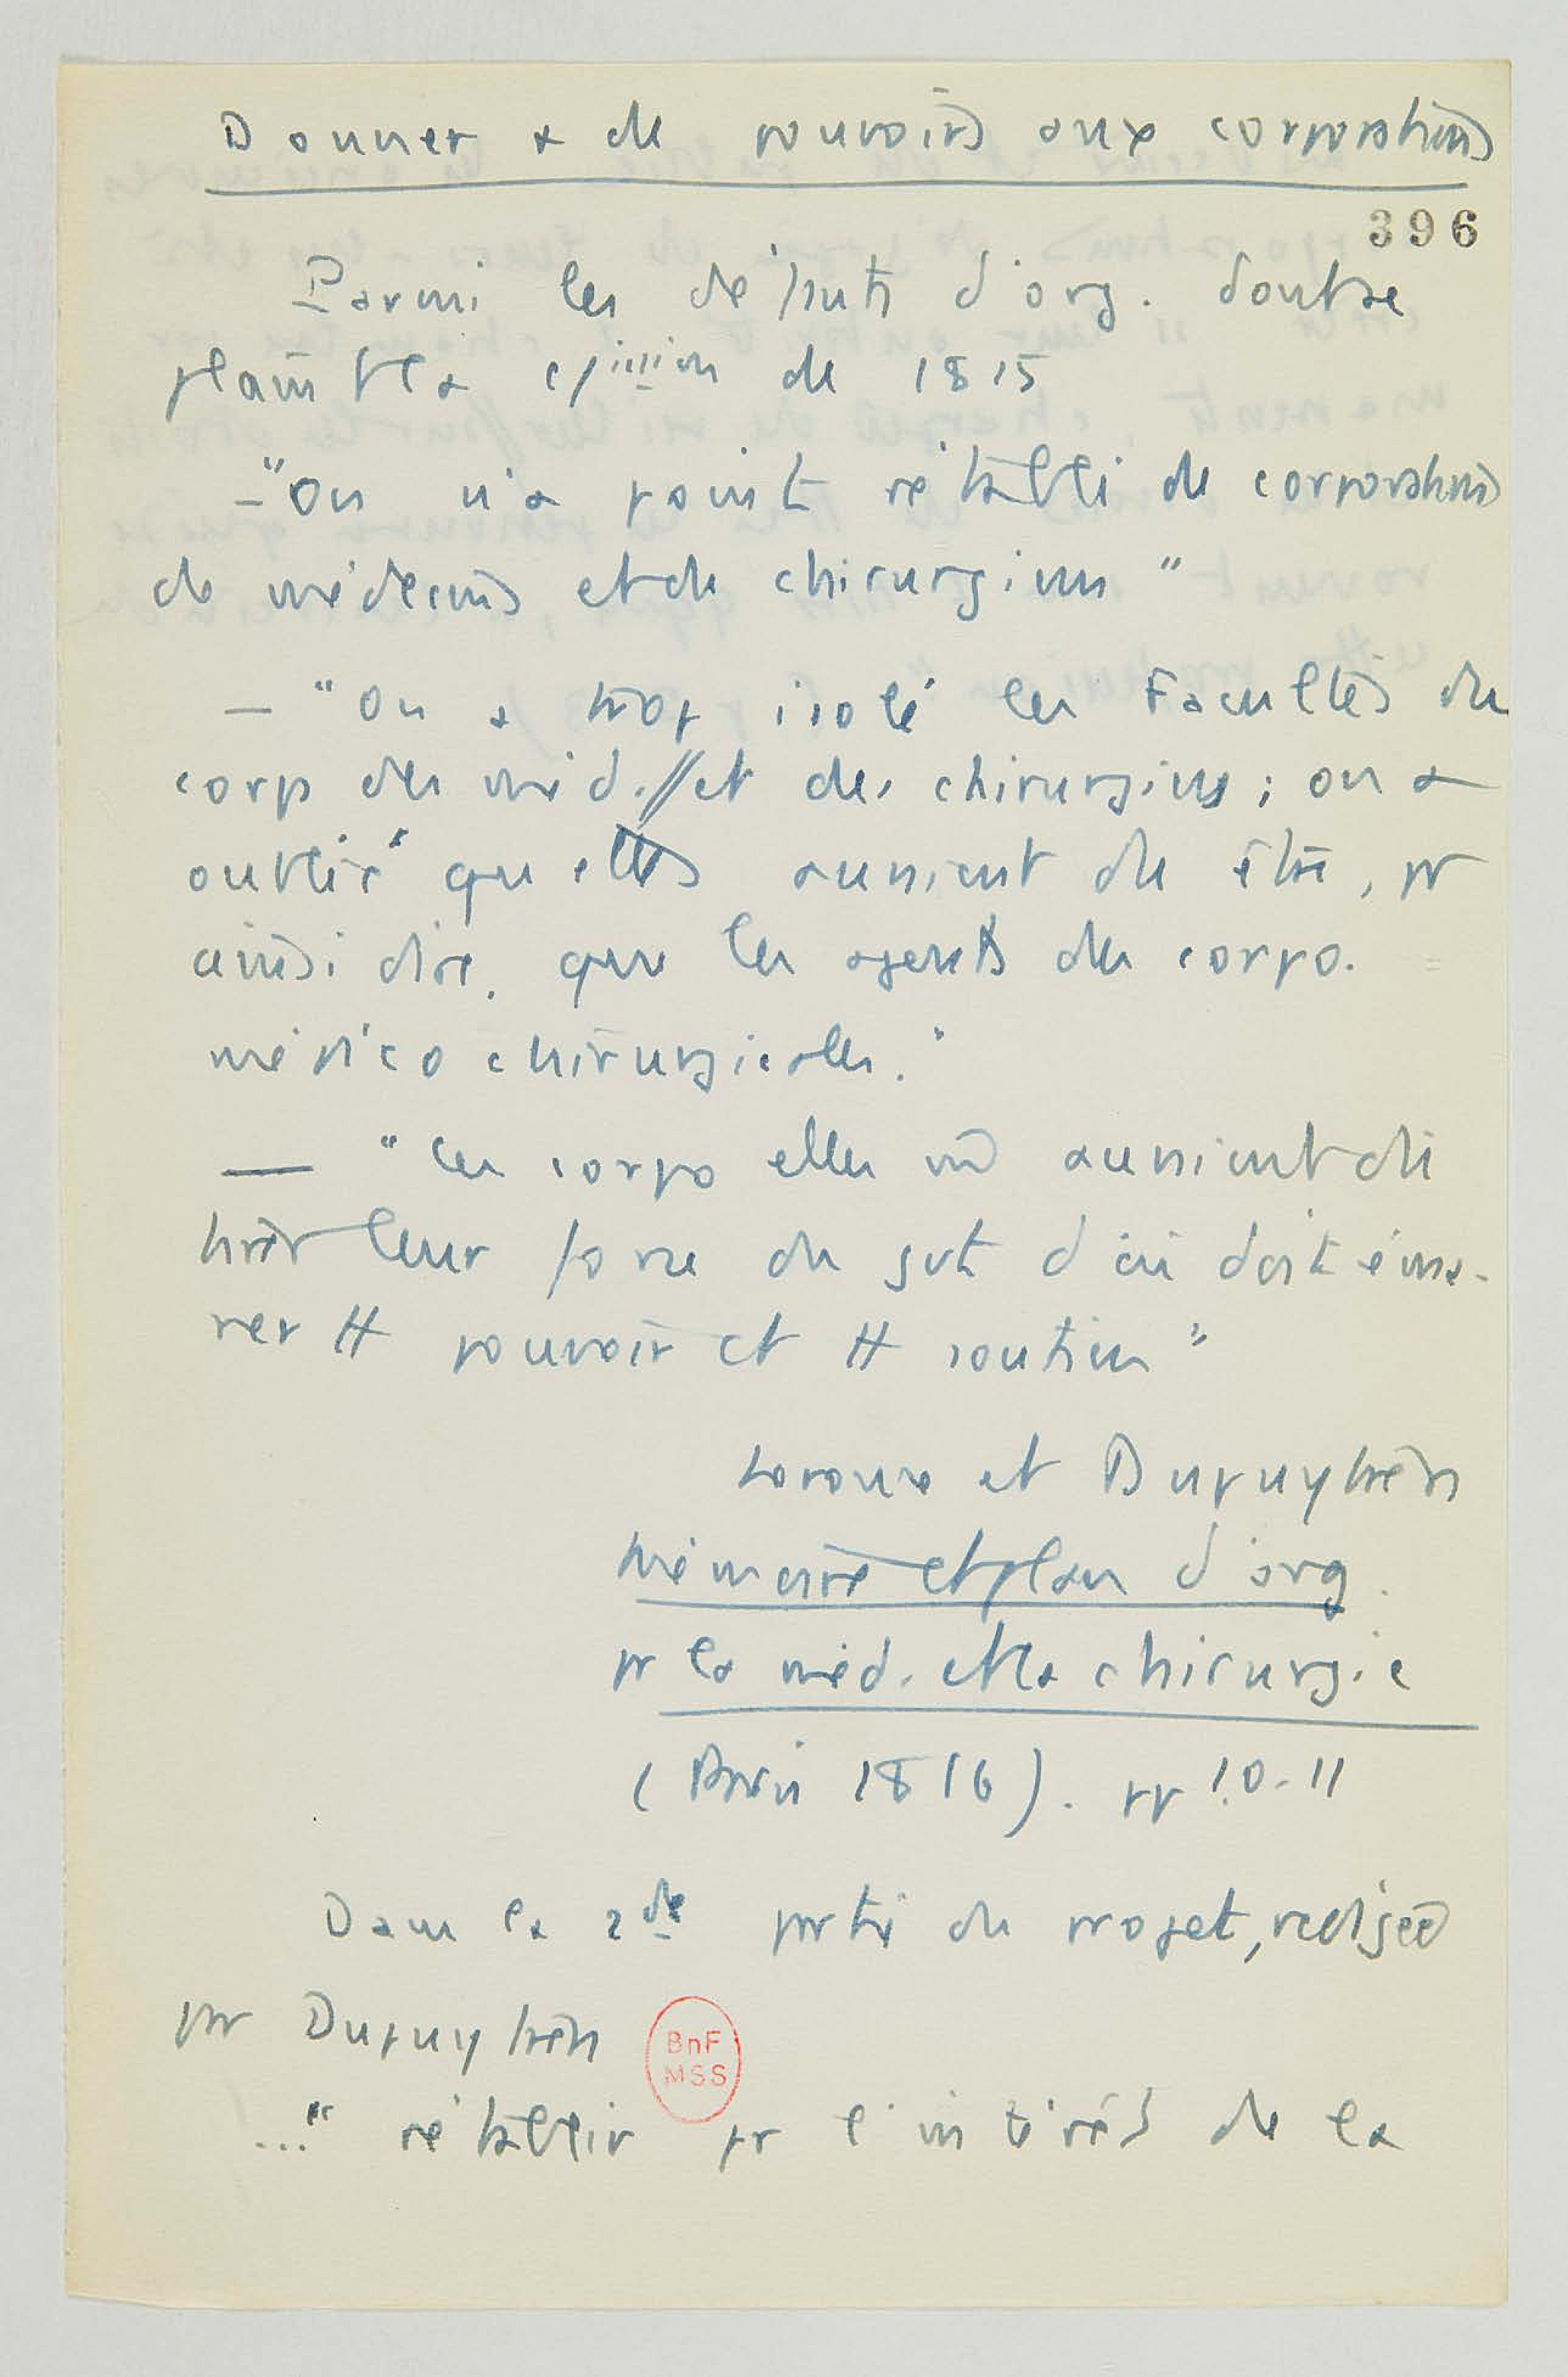 Donner + de pouvoirs aux corporations
396
Parmi les défauts d'org. dont se
plaint la c/ission de 1815
– "On n'a point rétabli de corporations
de médecins et de chirurgiens"
– "On a trop isolé les Facultés du
corps des méd. // et des chirurgiens ; on a
oublié qu'elles auraient dû être, pr
ainsi dire, que les agents des corpo.
médico chirurgicales."
— "Ces corpo elles m̂ auraient dû
tirer leur force du gvt d'où doit éma-
ner tt pouvoir et tt soutien"
Leroux et Dupuytren
Mémoire et plan d'org.
pr la méd. et la chirurgie
(Paris 1816). pp 10-11
Dans la 2de partie du projet, rédigée
par Dupuytren
BnF
MSS
..." rétablir pr l'intérêt de la